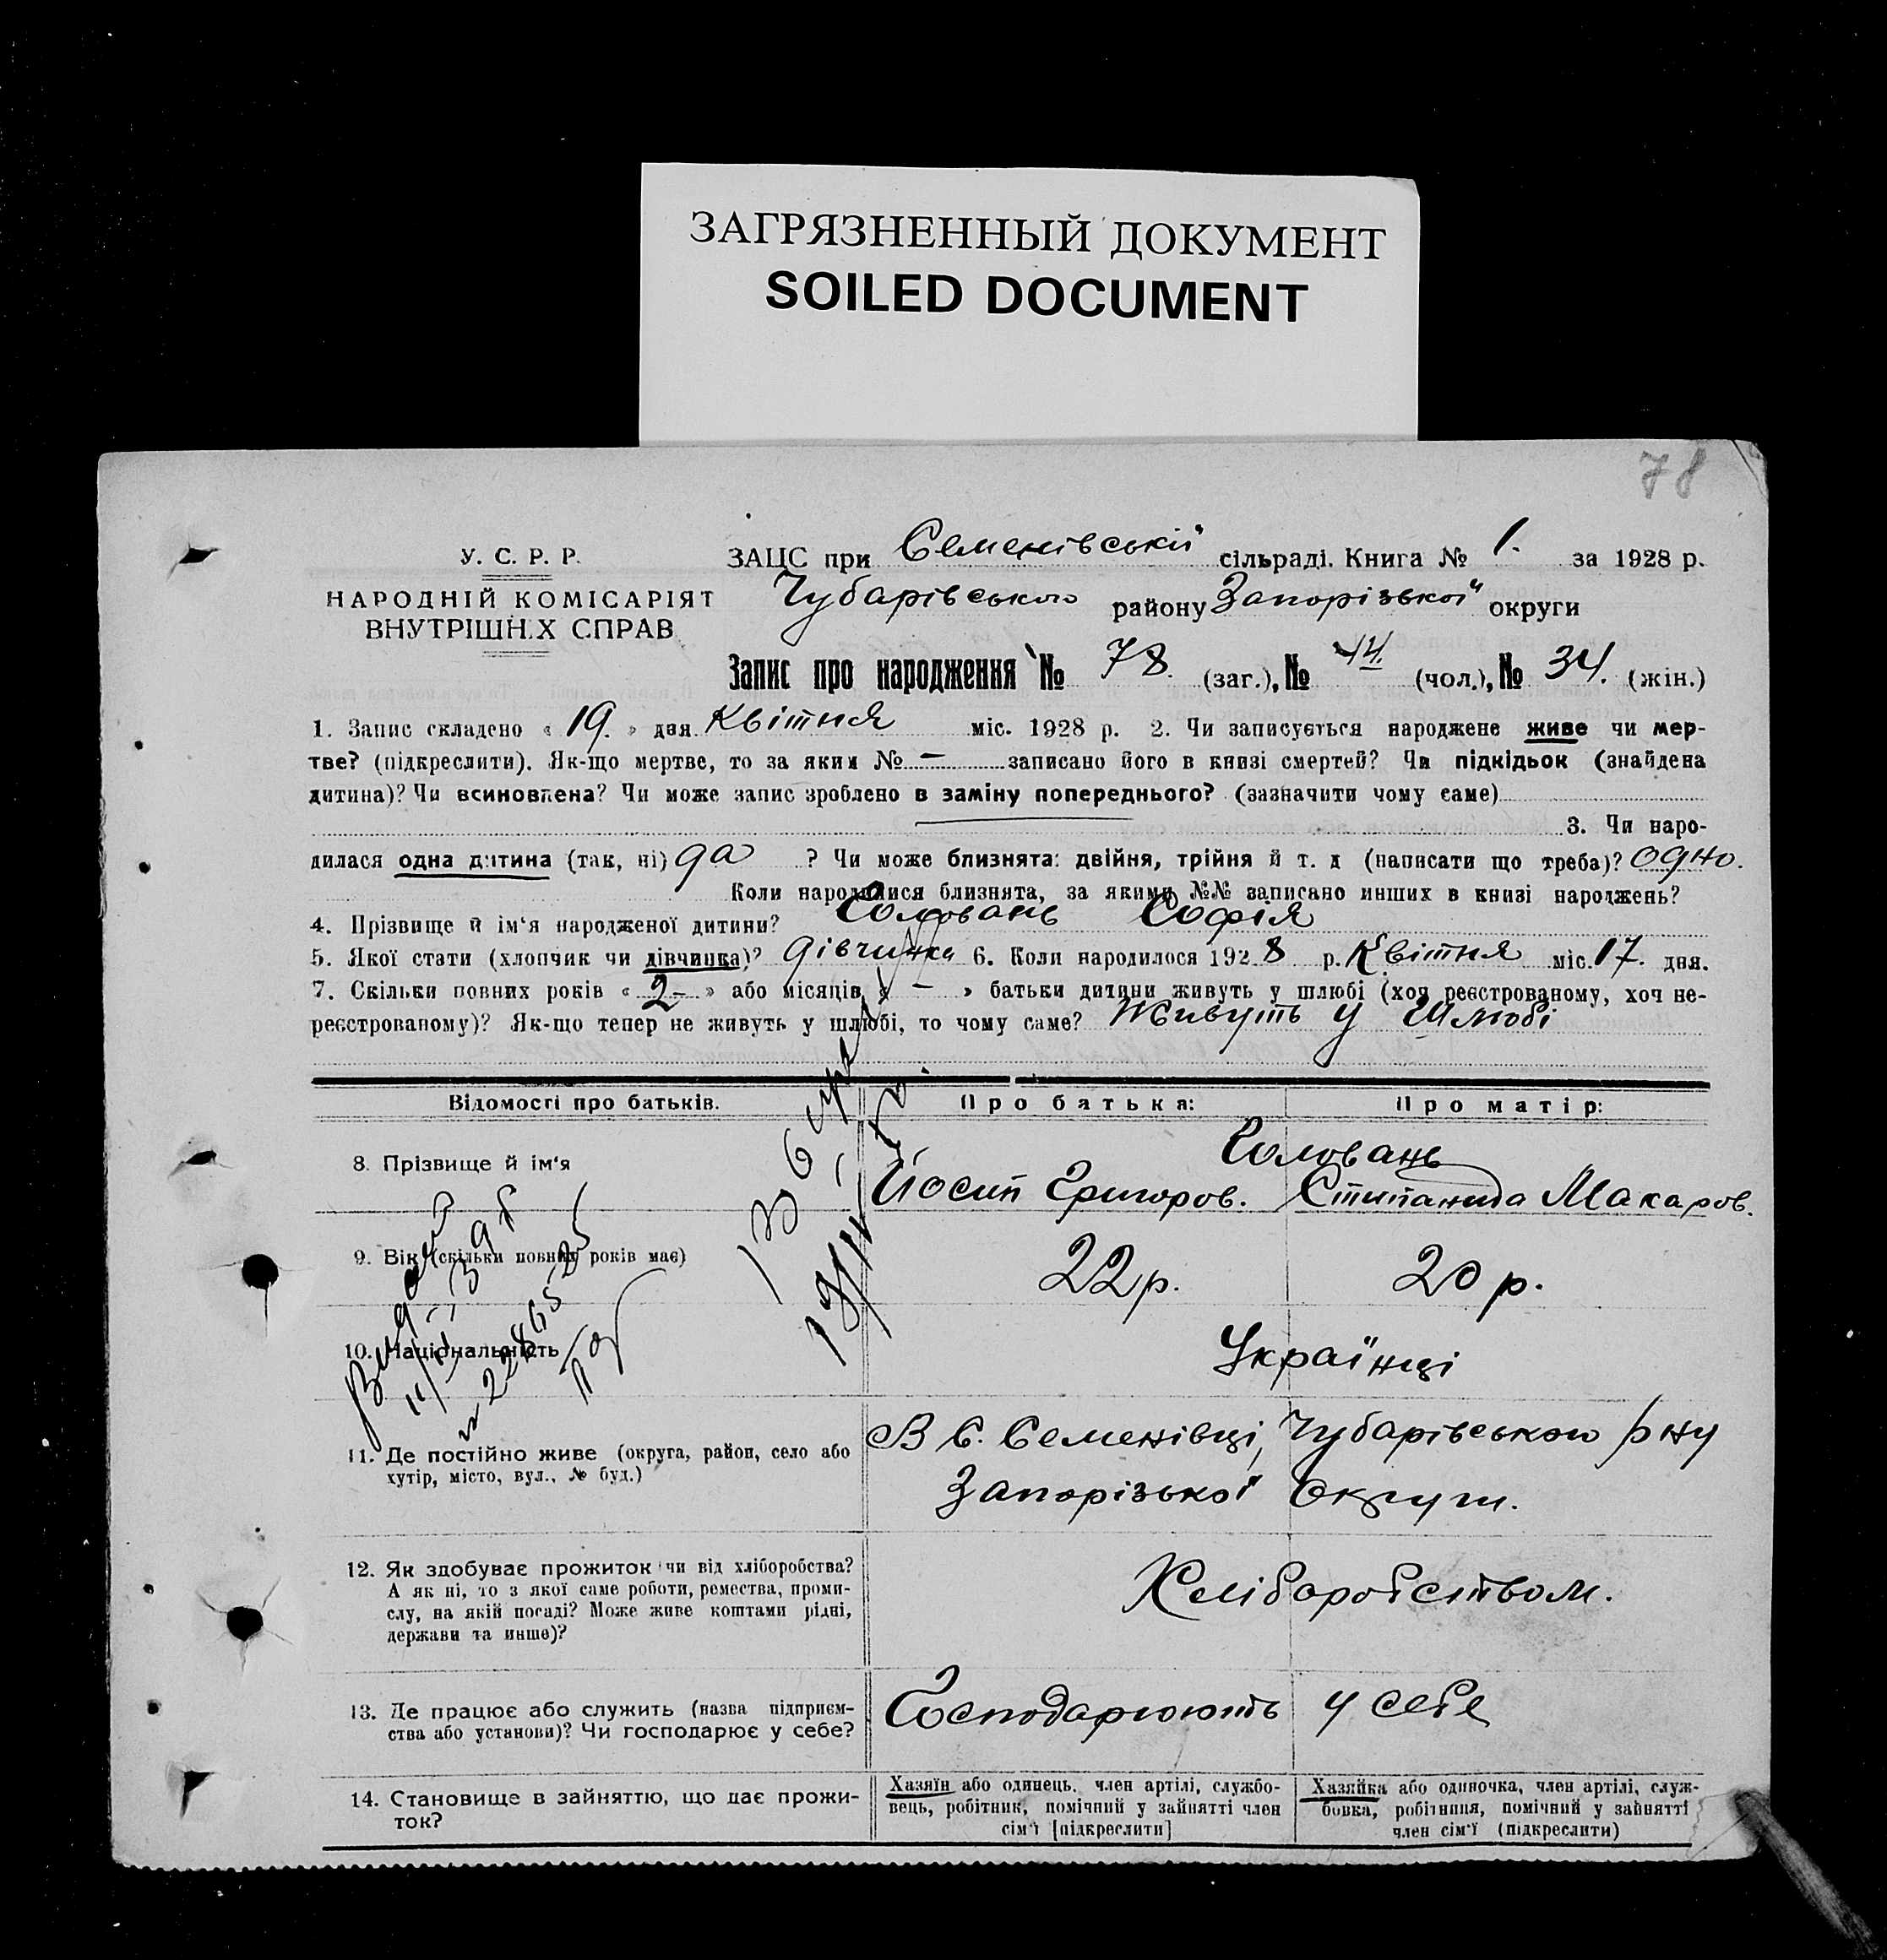 ЗАГРЯЗНЕННЫЙ ДОКУМЕНТ
SOILED DOCUMENT
78
У. С. Р. Р.
НАРОДНІЙ КОМІСАРІЯТ
ВНУТРІШНІХ СПРАВ
ЗАЦС при Семенівській сільраді. Книга № 1. за 1928 р.
Чубарівського району Запорізької округи
Запис про народження № 78. (заг.), № 44. (чол.), № 34. (жін.)
1. Запис складено « 19. » дня Квітня міс. 1928 р. 2. Чи записується народжене живе чи мер-
тве? (підкреслити). Як-що мертве, то за яким № — записано його в книзі смертей? Чи підкідьок (знайдена
дитина)? Чи всиновлена? Чи може запис зроблено в заміну попереднього? (зазначити чому саме)
3. Чи наро-
дилася одна дитина (так, ні) да ? Чи може близнята: двійня, трійня й т. д (написати що треба)? одно.
Коли народилися близнята, за якими №№ записано инших в книзі народжень?
4. Прізвище й ім'я народженої дитини? Соловань Софія
5. Якої стати (хлопчик чи дівчинка)? дівчинка 6. Коли народилося 1928 р. Квітня міс. 17. дня.
7. Скільки повних років « 2- » або місяців « — » батьки дитини живуть у шлюбі (хоч реєстрованому, хоч не-
реєстрованому)? Як-що тепер не живуть у шлюбі, то чому саме? Живуть у Шлюбі
Відомості про батьків. Про батька: Про матір:
8. Прізвище й ім'я
Соловань
Йосип Григоров. Степанида Макаров.
9. Вік (скільки повних років має) 22 р. 20 р.
10. Національність Українці
11. Де постійно живе (округа, район, село або
хутір, місто, вул., № буд.)
В С. Семенівці, Чубарівського р-ну
Запорізької Округи.
12. Як здобуває прожиток чи від хліборобства?
А як ні, то з якої саме роботи, ремества, проми-
слу, на якій посаді? Може живе коштами рідні,
держави та инше)?
Хліборобством.
13. Де працює або служить (назва підприєм-
ства або установи)? Чи господарює у себе?
Господарюють у себе
14. Становище в зайняттю, що дає прожи-
ток?
Хазяїн або одинець, член артілі, службо-
вець, робітник, помічний у зайнятті член
сім'ї [підкреслити]
Хазяйка або одиночка, член артілі, служ-
бовка, робітниця, помічний у зайнятті
член сім'ї (підкреслити)